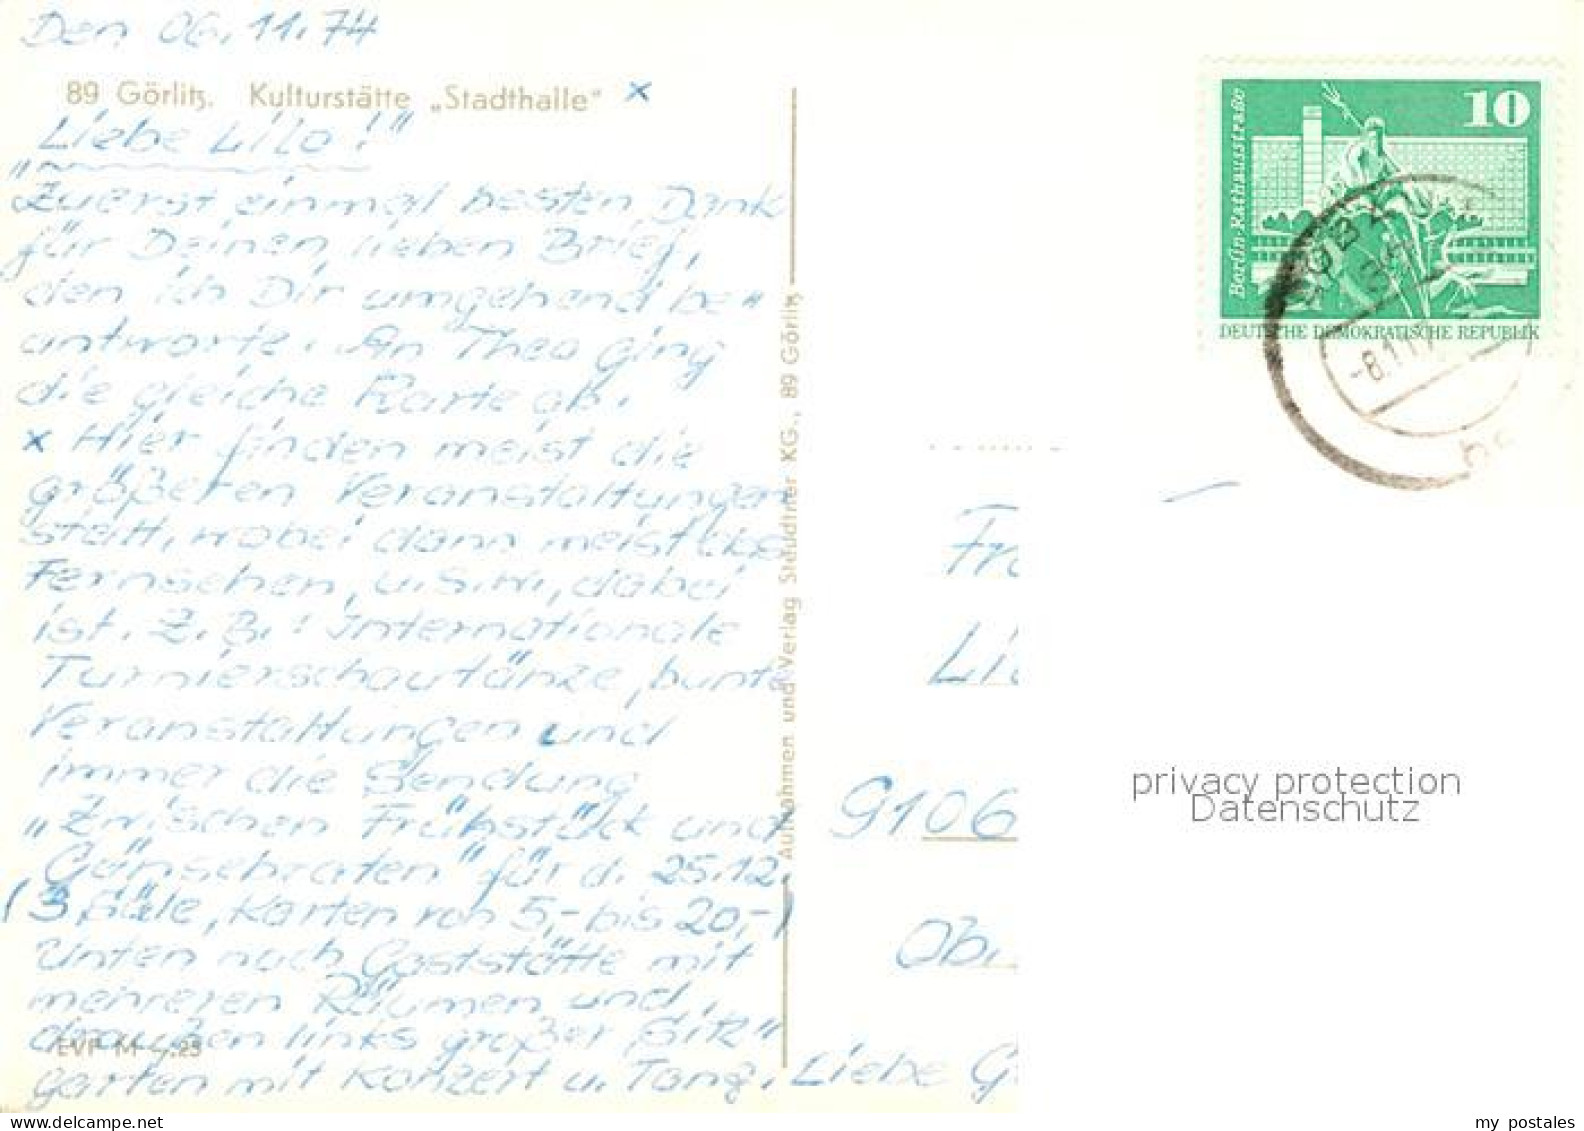 Den 06.11.74
89 Görlitz. Kulturstätte „Stadthalle" x
„Liebe Lilo!"
Zuerst einmal besten Dank
für Deinen lieben Brief,
den ich Dir umgehend be„
antworte. An Theo ging
die gleiche Karte ab.
x Hier finden meist die
größeren Veranstaltungen
statt, wobei dann meist das
Fernsehen, u.s.w., dabei
ist. Z.B.: Internationale
Turnierschautänze, bunte
Veranstaltungen und
immer die Sendung
„Zwischen Frühstück und
Gänsebraten" für d. 25.12.
(3 Säle, Karten von 5,- bis 20,-)
Unten noch Gaststätte mit
mehreren Räumen und,
draußen links großer Sitz"
EVP M -,25
garten mit Konzert u. Tanz. Liebe G
Aufnahmen und Verlag Steudtner KG., 89 Görlitz
10
Berlin·Rathausstraße
DEUTSCHE DEMOKRATISCHE REPUBLIK
-8.11.
Fr
Li
9106
Ob.
privacy protection
Datenschutz
my postales